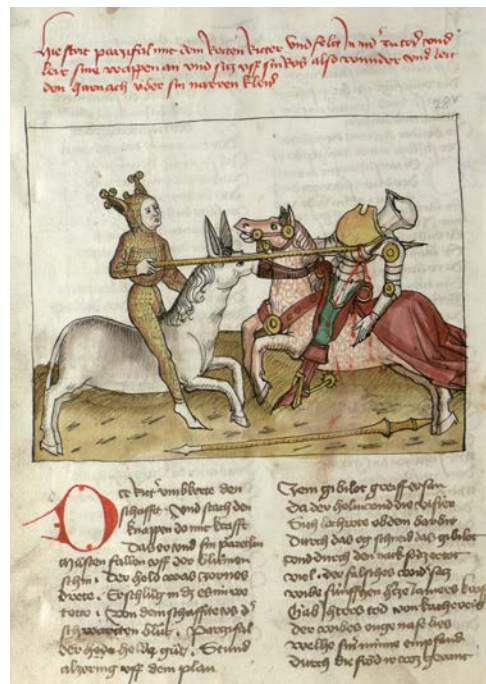 Hie strit parzifal mit dem Rotten Ritter Vnd felt In
leit sine wappen an vnd sitz vff sin Ros also wunder vnd leit
den Harnach vber sin narren kleid
28v
vmbkerte den
schaffte . Vnd stach den
knappen do mit krafft
Das er vnd sin
Músten fallen vff der blůmen
schin . Der held was zornes
drete . Er schlůg in dz es im we
tette . Von dem schaffte vs d'
schwartten blůt . Parzifal
der helde gůt . Stund
alzornig vff dem plan
Sein gibilot greiff er san
Da der helm vnd die visier
Sich lochrete ob dem barbier
Durch das og schneid das gibilot
vnd durch den nack so dz er tot
viel . der falscheit wid' satz
wibe súnfftzen hertze iamers
Gab Jthers tod von
der wibes ouge nasse lies
welhe sin minne empfand
Durch die fröd wz gerant